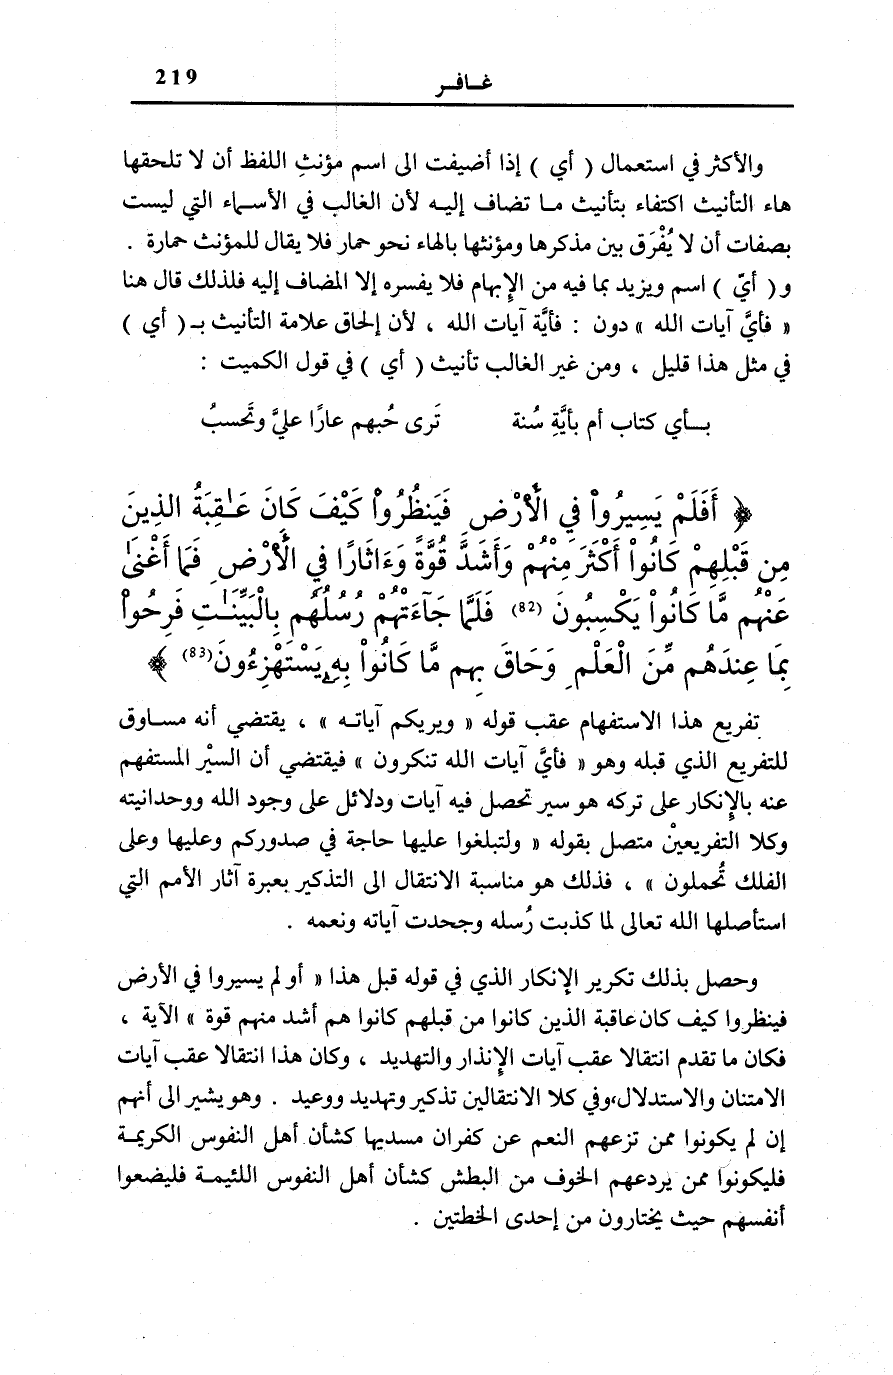 219
غـافـر
والأكثر في استعمال ( أي ) إذا أضيفت الى اسم مؤنثِ اللفظ أن لا تلحقها
هاء التأنيث اكتفاء بتأنيث مـا تضاف إليـه لأن الغالب في الأسـماء التي ليست
بصفات أن لا يُفْرَق بين مذكرها ومؤنثها بالهاء نحو حمار فلا يقال للمؤنث حمارة .
و( أيّ ) اسم ويزيد بما فيه من الإبهام فلا يفسره إلا المضاف إليه فلذلك قال هنا
« فأيَّ آيات الله » دون : فأيَّة آيات الله ، لأن إلحاق علامة التأنيث بـ( أي )
في مثل هذا قليل ، ومن غير الغالب تأنيث ( أي ) في قول الكميت :
بـأي كتاب أم بأيَّةِ سُنة تَرى حُبهم عارًا عليَّ وتَحسبُ
﴿ أَفَلَمْ يَسِيرُواْ فِي الْأَرْضِ فَيَنظُرُواْ كَيْفَ كَانَ عَـٰقِبَةُ الذِينَ
مِن قَبْلِهِمْ كَانُواْ أَكْثَرَ مِنْهُمْ وَأَشَدَّ قُوَّةً وَءَاثَارًا فِي الْأَرْضِ فَمَا أَغْنَىٰ
عَنْهُم مَّا كَانُواْ يَكْسِبُونَ (82) فَلَمَّا جَآءَتْهُمْ رُسُلُهُم بِالْبَيِّنَـٰتِ فَرِحُواْ
بِمَا عِندَهُم مِّنَ الْعِلْمِ وَحَاقَ بِهِم مَّا كَانُواْ بِهِ يَسْتَهْزِءُونَ (83) ﴾
تفريع هذا الاستفهام عقب قوله « ويريكم آياتـه » ، يقتضي أنه مسـاوق
للتفريع الذي قبله وهو « فأيَّ آيات الله تنكرون » فيقتضي أن السيْر المستفهم
عنه بالإنكار على تركه هو سير تحصل فيه آيات ودلائل على وجود الله ووحدانيته
وكلا التفريعيْن متصل بقوله « ولتبلغوا عليها حاجة في صدوركم وعليها وعلى
الفلك تُحملون » ، فذلك هو مناسبة الانتقال الى التذكير بعبرة آثار الأمم التي
استأصلها الله تعالى لما كذبت رُسله وجحدت آياته ونعمه .
وحصل بذلك تكرير الإنكار الذي في قوله قبل هذا « أو لم يسيروا في الأرض
فينظروا كيف كان عاقبة الذين كانوا من قبلهم كانوا هم أشد منهم قوة » الآية ،
فكان ما تقدم انتقالا عقب آيات الإنذار والتهديد ، وكان هذا انتقالا عقب آيات
الامتنان والاستدلال،وفي كلا الانتقالين تذكير وتهديد ووعيد . وهو يشير الى أنهم
إن لم يكونوا ممن تزعهم النعم عن كفران مسديها كشأن أهل النفوس الكريمـة
فليكونوا ممن يردعهم الخوف من البطش كشأن أهل النفوس اللئيمـة فليضعوا
أنفسهم حيث يختارون من إحدى الخطتين .